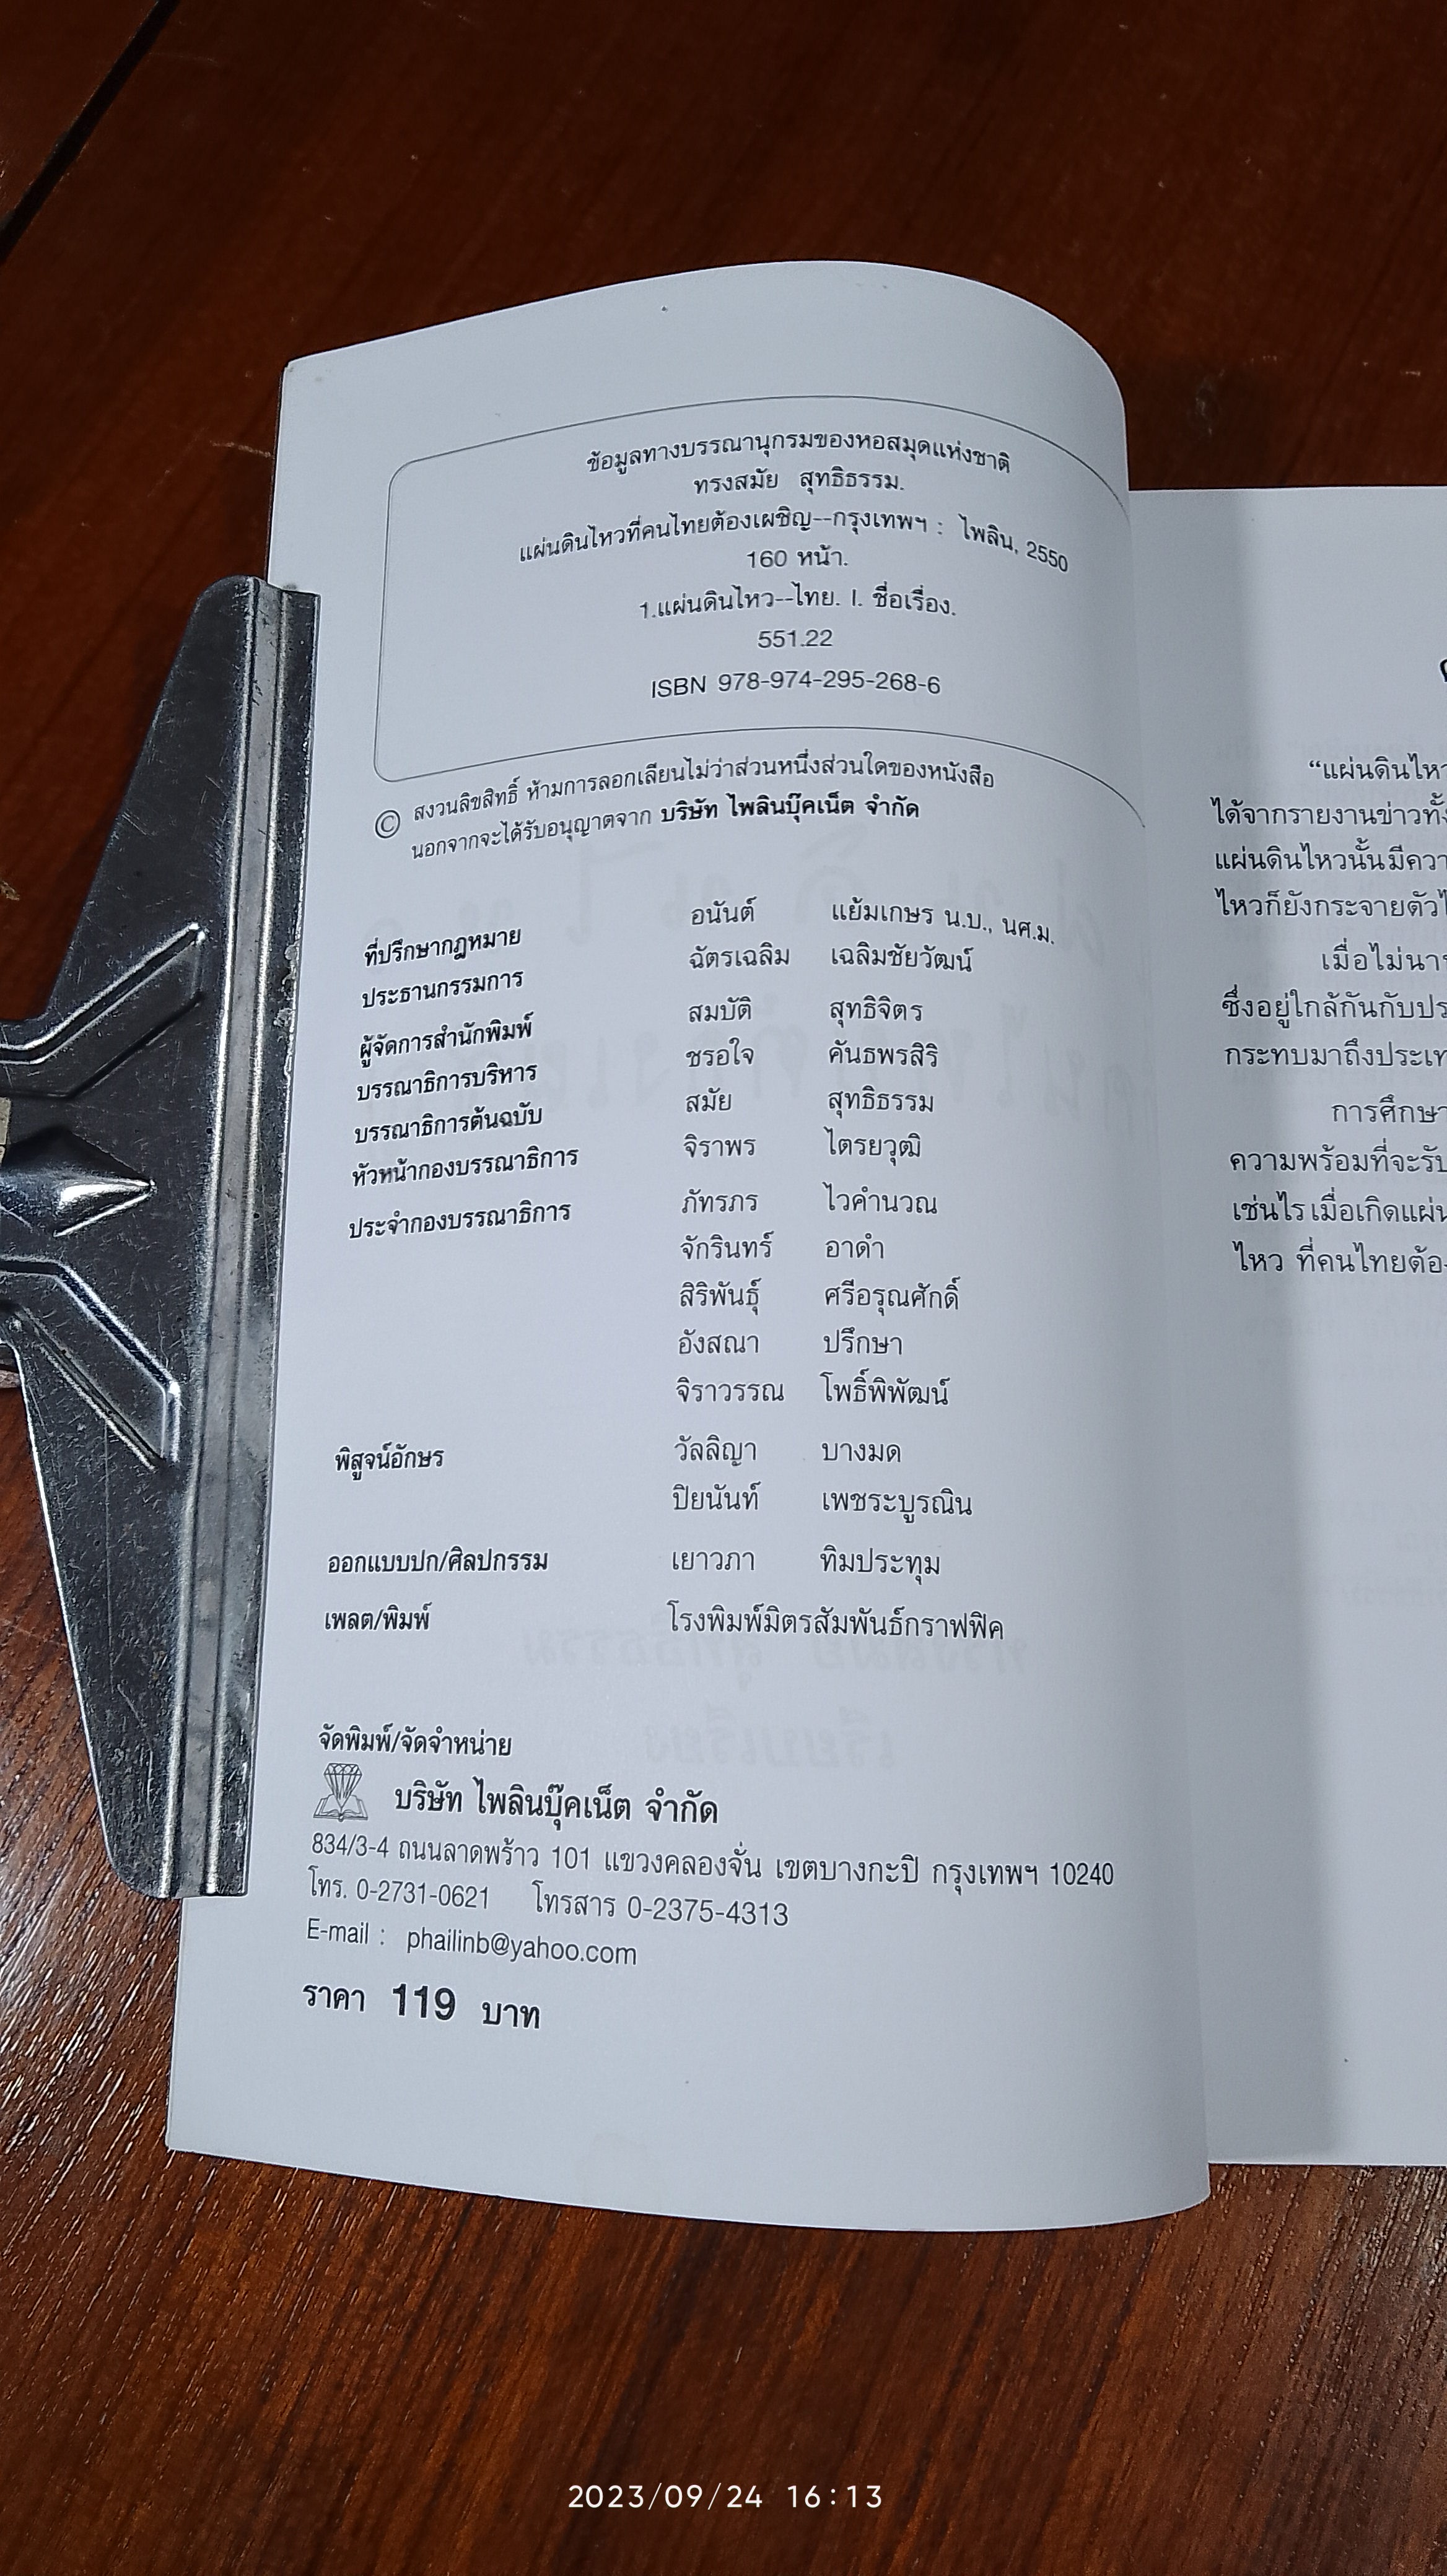 ข้อมูลทางบรรณานุกรมของหอสมุดแห่งชาติ
ทรงสมัย สุทธิธรรม.
แผ่นดินไหวที่คนไทยต้องเผชิญ--กรุงเทพฯ : ไพลิน, 2550
160 หน้า.
1.แผ่นดินไหว--ไทย. I. ชื่อเรื่อง.
551.22
ISBN 978-974-295-268-6
© สงวนลิขสิทธิ์ ห้ามการลอกเลียนไม่ว่าส่วนหนึ่งส่วนใดของหนังสือ
นอกจากจะได้รับอนุญาตจาก บริษัท ไพลินบุ๊คเน็ต จำกัด
ที่ปรึกษากฎหมาย อนันต์ แย้มเกษร น.บ., นศ.ม.
ประธานกรรมการ ฉัตรเฉลิม เฉลิมชัยวัฒน์
ผู้จัดการสำนักพิมพ์ สมบัติ สุทธิจิตร
บรรณาธิการบริหาร ชรอใจ คันธพรสิริ
บรรณาธิการต้นฉบับ สมัย สุทธิธรรม
หัวหน้ากองบรรณาธิการ จิราพร ไตรยวุฒิ
ประจำกองบรรณาธิการ ภัทรภร ไวคำนวณ
จักรินทร์ อาดำ
สิริพันธุ์ ศรีอรุณศักดิ์
อังสณา ปรึกษา
จิราวรรณ โพธิ์พิพัฒน์
พิสูจน์อักษร วัลลิญา บางมด
ปิยนันท์ เพชระบูรณิน
ออกแบบปก/ศิลปกรรม เยาวภา ทิมประทุม
เพลต/พิมพ์ โรงพิมพ์มิตรสัมพันธ์กราฟฟิค
จัดพิมพ์/จัดจำหน่าย
บริษัท ไพลินบุ๊คเน็ต จำกัด
834/3-4 ถนนลาดพร้าว 101 แขวงคลองจั่น เขตบางกะปิ กรุงเทพฯ 10240
โทร. 0-2731-0621 โทรสาร 0-2375-4313
E-mail : phailinb@yahoo.com
ราคา 119 บาท
“แผ่นดินไหว
ได้จากรายงานข่าวทั้ง
แผ่นดินไหวนั้นมีควา
ไหวก็ยังกระจายตัวไ
เมื่อไม่นาน
ซึ่งอยู่ใกล้กันกับประ
กระทบมาถึงประเท
การศึกษา
ความพร้อมที่จะรับ
เช่นไรเมื่อเกิดแผ่น
ไหว ที่คนไทยต้อง
2023/09/24 16:13